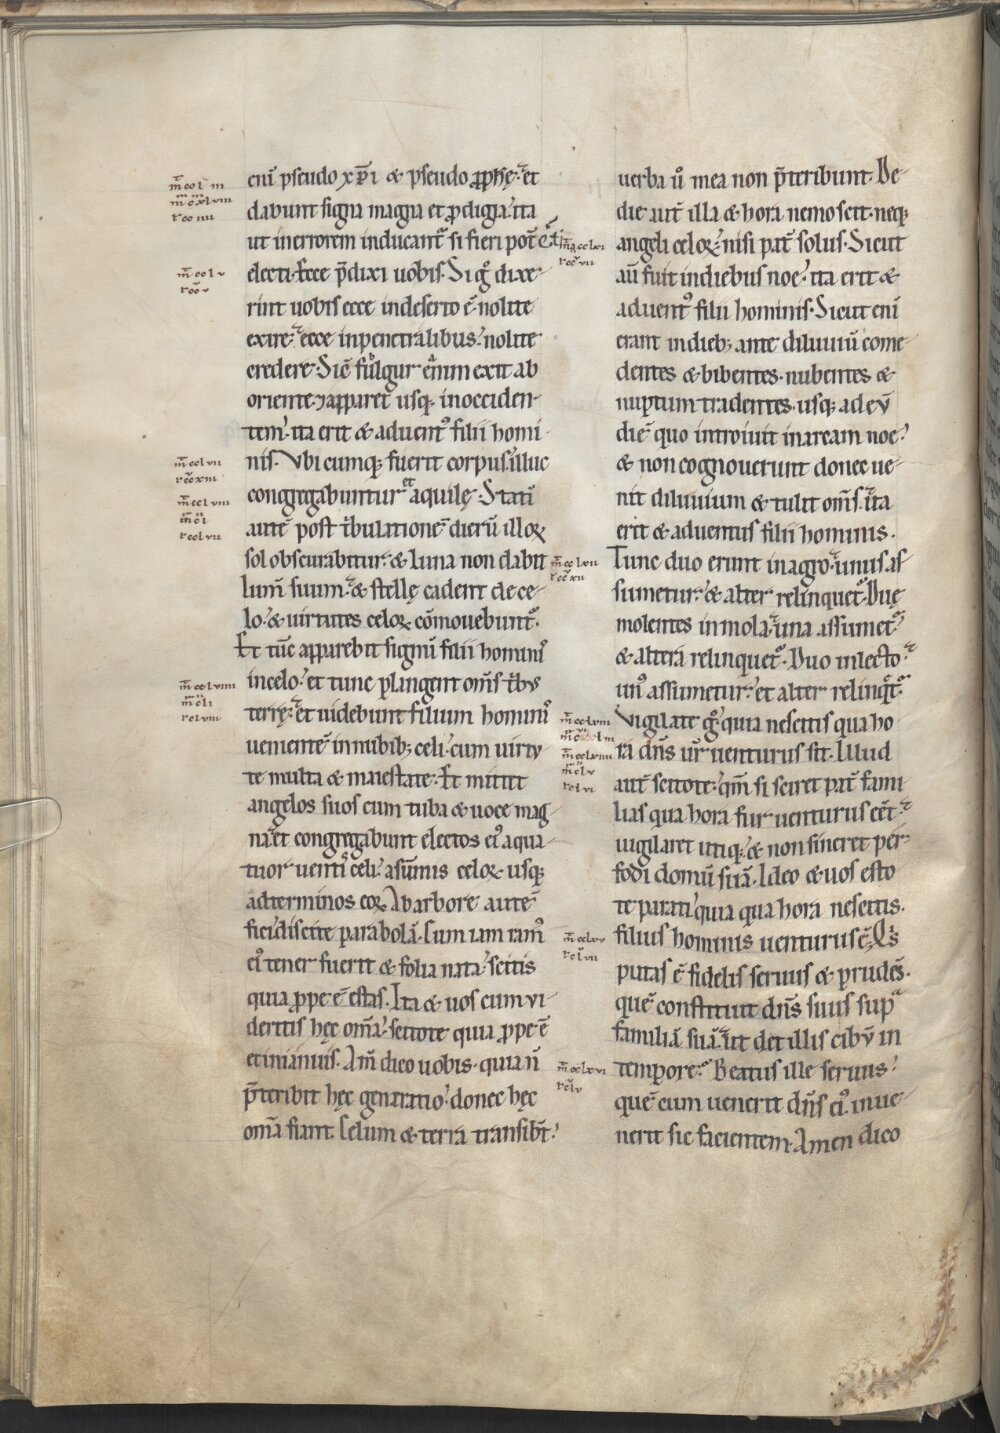 enī pseudo xp̄i & pseudo ꝓphę· et
dabunt signa magna et ꝓdigia· ita
ut in errorem inducant̃ si fieri potē &̄
electi. Ecce p̄dixi uobis. Si gͦ dixe-
rint uobis ecce in deserto ē· nolite
exire· ecce in penetralibus· nolite
credere. Sic̄ fulgur enim exit ab
oriente ⁊ apparet usq; in occiden-
tem· ita erit & aduentꝰ filii homi-
nis. Vbicumq; fuerit corpus· illuc
congregabuntur et aquilę. Statī
autē post t̄bulationē dierū illoꝝ
sol obscurabitur· & luna non dabit
lum̄ suum· & stellę cadent de ce-
lo· & uirtutes celoꝝ cōmouebunt̃.
Et tūc apparebit signū filii hominiꝰ
in celo· et tunc plangent om̄s t̄bꝰ
terrę· et uidebunt filium hominiꝰ
uenientē in nubib; celi· cum uirtu-
te multa & maiestate. Et mittet
angelos suos cum tuba & uoce mag-
na· et congregabunt electos eiꝰ a qua-
tuor uentiͥ celi· a sūmis celoꝝ usq;
ad terminos eoꝝ. Ab arbore autē
fici discite parabolā. Cum iam ramꝰ
eiꝰ tener fuerit & folia nata· scitis
quia ꝓpe ē estas. Ita & uos cum vi-
deritis hęc om̄a· scitote quia ꝓpe ē
et in ianuis. Am̄ dico uobis· quia n̄
p̄teribit hęc generatio· donec hęc
om̄a fiant. Celum & terra transibt̄·
uerba ū mea non p̄teribunt. De
die aut̄ illa & hora nemo scit· neq;
angeli celoꝝ· nisi pat̄ solus. Sicut
aū fuit in diebus noe· ita erit &
aduentꝰ filii hominis. Sicut enī
erant in dieb; ante diluuiū come-
dentes & bibentes· nubentes &
nuptum tradentes· usq; ad eū
diē quo introiuit in arcam noe·
& non cognouerunt donec ue-
nit diluuium & tulit om̄s· ita
erit & aduentus filii hominis.
Tunc duo erunt in agro· unus as-
sumetur· & alter relinquet̃. Duę
molentes in mola· una assumet̃·
& altera relinquet̃. Duo in lecto·
unꝰ assumetur· et alter relinq̄t̃.
Vigilate gͦ· quia nescitis qua ho-
ra dn̄s ur̄ uenturus sit. Illud
aut̄ scitote· qm̄ si sciret pat̄ fami-
lias qua hora fur uenturus eēt·
uigilaret utiq; & non sineret per-
fodi domū suā. Ideo & uos esto-
te parati· quia qua hora nescitis.
filius hominis uenturus ē. Qͥs
putas ē fidelis seruus & prudēs·
quē constituit dn̄s suus supᵃ
familiā suā· ut det illis cibū in
tempore· Beatus ille seruus·
quē cum uenerit dn̄s eiꝰ· inue-
nerit sic facientem. Amen dico